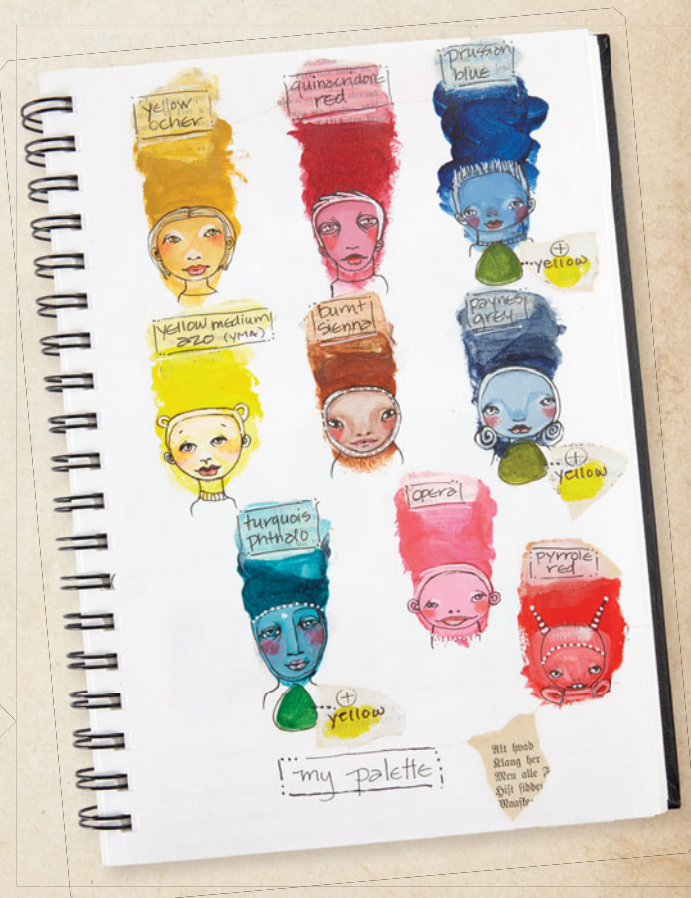 yellow
ocher
quinacridone
red
prussian
blue
+
yellow
yellow medium
azo (YMA)
burnt
sienna
paynes
grey
+
yellow
turquois
phthalo
opera
pyrrole
red
+
yellow
my palette
Alt hvad
Klang her
Men alle
Hist sidde
Maaske